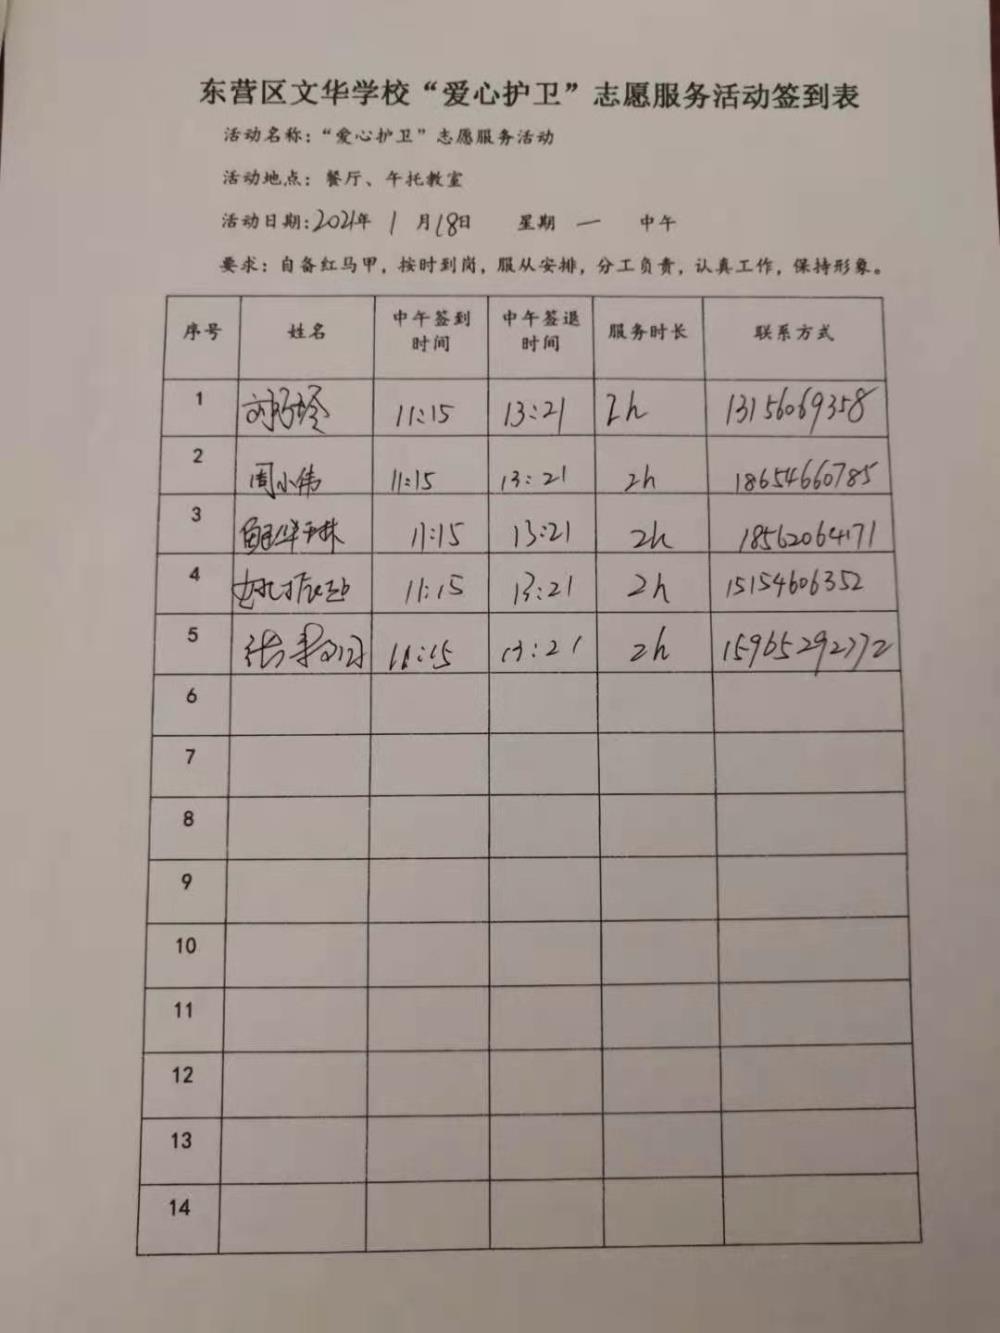 东营区文华学校“爱心护卫”志愿服务活动签到表
活动名称：“爱心护卫”志愿服务活动
活动地点：餐厅、午托教室
活动日期：2021年 1 月18日 星期 一 中午
要求：自备红马甲，按时到岗，服从安排，分工负责，认真工作，保持形象。
序号 姓名 中午签到时间 中午签退时间 服务时长 联系方式
1 11:15 13:21 2h 13156069358
2 周小伟 11:15 13:21 2h 18654660785
3 11:15 13:21 2h 18562064171
4 11:15 13:21 2h 15154606352
5 11:15 13:21 2h 15965292772
6
7
8
9
10
11
12
13
14